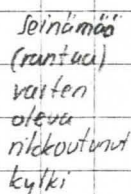 seinämää
(rantaa)
varten
oleva
rikkoutunut
kylki